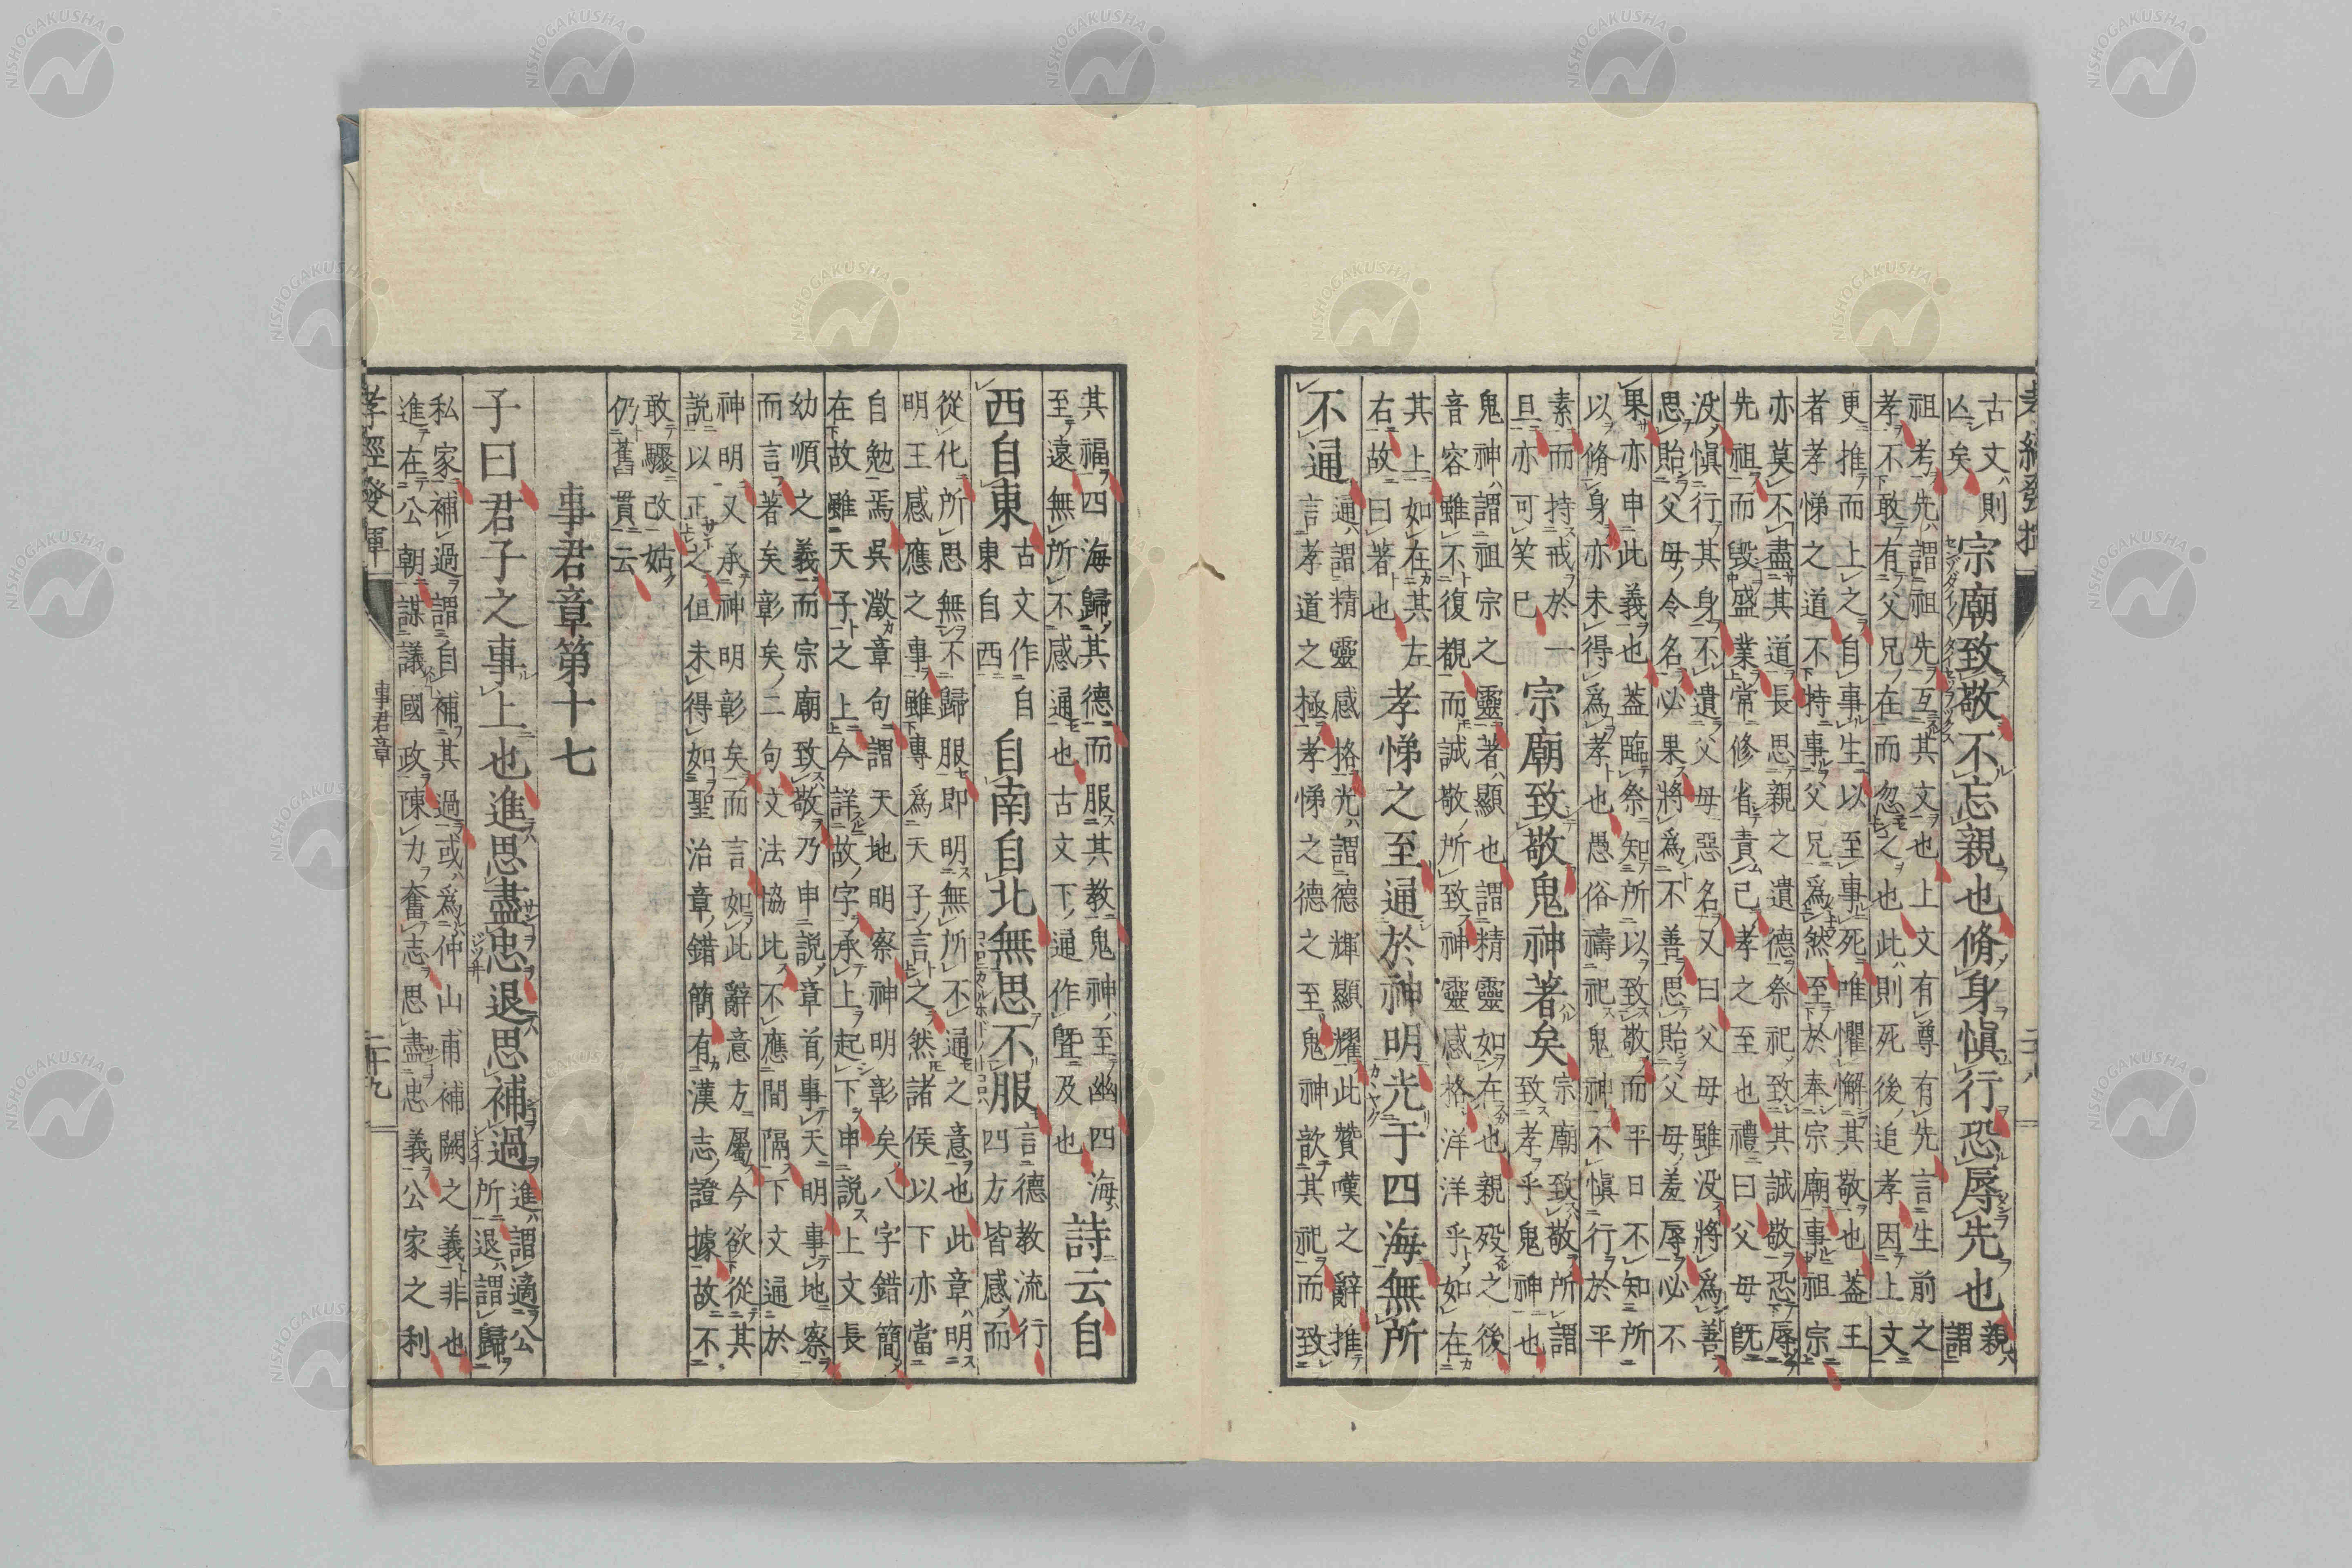 古文則
亾矣
宗廟致敬不忘親也脩身慎行恐辱先也
親
謂
祖考先謂祖先互其文也上文有尊有先言生前之
孝不敢有父兄在而忽之也此則死後追孝因上文
更推而上之自事生以至事死唯懼懈其敬也蓋王
者孝悌之道不特事父兄爲然至於奉宗廟事祖宗
亦莫不盡其道長思親之遺德祭祀致其誠敬恐辱
先祖而毀盛業常修省責己孝之至也禮曰父母既
没慎行其身不遺父母惡名又曰父母雖没將爲善
思貽父母令名必果將爲不善思貽父母羞辱必不
果亦申此義也蓋臨祭知所以致敬而平日不知所
以脩身亦未得爲孝也愚俗禱祀鬼神不慎行於平
素而持戒於一
旦亦可笑已
宗廟致敬鬼神著矣
宗廟致敬所謂
致孝乎鬼神也
鬼神謂祖宗之靈著顯也謂精靈如在也親歿之後
音容雖不復覩而誠敬所致神靈感格洋洋乎如在
其上如在其左
右故曰著也
孝悌之至通於神明光于四海無所
不通
通謂精靈感格光謂德輝顯耀此贊嘆之辭推
言孝道之極孝悌之德之至鬼神歆其祀而致
其福四海歸其德而服其教鬼神至幽四海
至遠無所不感通也古文下通作曁及也
詩云自
西自東
古文作自
東自西
自南自北無思不服
言德教流行
四方皆感而
從化所思無不歸服即明無所不通之意也此章明
明王感應之事雖專爲天子言之然諸侯以下亦當
自勉焉吳澂章句謂天地明察神明彰矣八字錯簡
在故雖天子之上今詳故字承上起下申説上文長
幼順之義而宗廟致敬乃申説章首事天明事地察
而言著矣彰矣二句文法協比不應間隔下文通於
神明又承神明彰矣而言如此辭意方屬今欲從其
説以正之但未得如聖治章錯簡有漢志證據故不
敢驟改姑
仍舊貫云
事君章第十七
子曰君子之事上也進思盡忠退思補過
進謂適公
所退謂歸
私家補過謂自補其過或爲仲山甫補闕之義非也
進在公朝謀議國政陳力奮志思盡忠義公家之利
孝經發揮
事君章
二十九